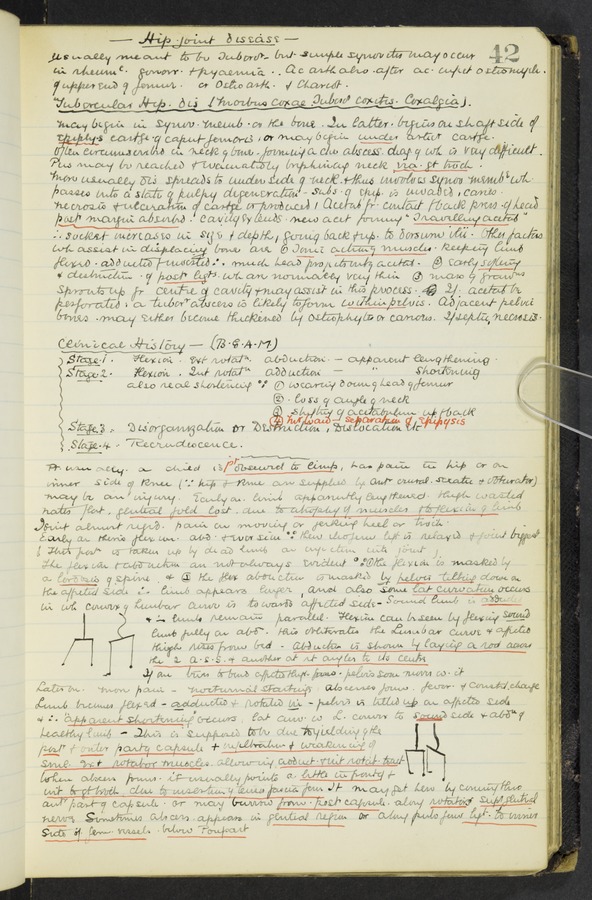 42
— Hip-joint disease —
Usually meant to be Tubercr. but simple synovitis may occur
in rheumc. gonorr. & pyaemia. Ac arth also after ac. infect osteomyle.
of upper end of femur. or Osteoarth. & Charcot.
Tubercular Hip. dis (Morbus coxae Tubercr coxitis. Coxalgia).
may begin in synov. memb. or the bone. In latter begins on shaft side of
epiphys cartge of caput femoris, or may begin under artict cartge.
Often circumscribed in neck of bone. forming a chr abscess diag of wh is very difficult.
Pus may be reached & evacuated by trephining neck via gt troch.
More usually dis spreads to under side of neck & thus involves synov memb wh
passes into a state of pulpy degeneration. Subs of epip. is invaded, caries
necrosis & ulceration of cartge or produced / Acetab fr contact & back press. of head
post margin absorbd. cavity extends. new acet forming "Travelling acetab"
∴ socket increases in size & depth, going back & up. to dorsum ilii. Other factors
wh assist in displacing bone are ① Tonic acting muscles. keeping limb
flexed. adducted & inverted ∴ much head projects out of acetab. ② early softening
& destruction of post ligts. wh are normally very thin ③ mass of granns
sprouts up fr centre of cavity & may assist in this process. If acetab be
perforated. a tuber abscess is likely to form within pelvis. Adjacent pelvic
bones. may either become thickened by osteophytes or carious. If septic, necrosis.
Clinical History — (B.E.A.M)
Stage. 1. Flexion. Ext rotatn. abduction — apparent lengthening.
Stage. 2. Flexion. Int rotatn adduction — " Shortening
also real shortening ∵ ① wearing down of head of femur
② loss of angle of neck
③ shifting of acetabulum up & back
④ separation of epiphysis
Stage 3. Disorganization or Destruction, Dislocation etc
Stage. 4. Recrudescence.
a child is 1st observed to limp, has pain in hip or on
inner side of knee (∵ hip & knee are supplied by ant crural. sciatic & obturator)
may be an injury. Early on limb apparently lengthened. thigh wasted
nates flat, gluteal fold lost. due to atrophy of muscles & to flexion of limb
Joint almost rigid. pain on moving or jerking heel or troch.
Early on there's flexion. abd. & eversion ∵ then
{ This post is taken up by dead limb on injection into joint }
The flexion & abduction are not always evident ∵ ① the flexion is masked by
a lordosis of spine, & ② the flex abduction is masked by pelvis tilting down on
the affected side ∴ limb appears longer, and also some lat curvation occurs
in wh convexy of lumbar curve is towards affected side - Sound limb is adducted
& ∴ limbs remain parallel. Flexion can be seen by flexing sound
limb fully on abdn. this obliterates the lumbar curve & affected
thigh rises from bed - Abduction is shown by laying a rod across
the 2 a.s.s. & another at rt angles to its centre
Later on. more pain - nocturnal startings abscess forms. fever. & constit. change
Limb becomes flexed - adducted & rotated in - pelvis is tilted up on affected side
& ∴ "apparent shortening" occurs, lat curv in L. convex to sound side & abdn of
healthy limb - This is supposed to be due to yielding of the
post & outer part of capsule + infiltration & weakening of
small ext rotator muscles. allowing adduct & int rotat.
When abscess forms. it usually points a little in front of
int to gt troch due to insertion of tensor fascia fem. It may get here by coming thro
antr part of capsule. or may burrow from post capsule. along rotators
nerves. Sometimes abscess. appears in gluteal region or along
side of fem. vessels. below Poupart